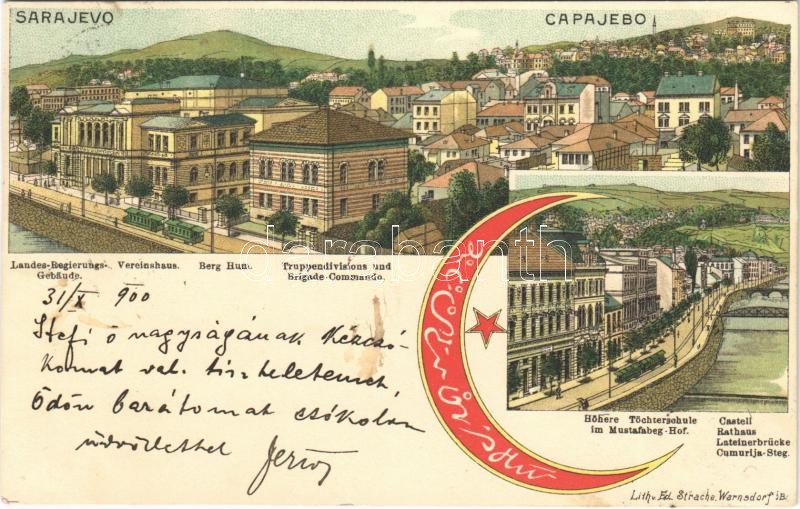 SARAJEVO
САРАЈЕВО
Landes-Regierungs- Vereinshaus. Berg Hum. Truppendivisions und
Gebäude. Brigade-Commando.
darabanth
31/X 900
Stefi ő nagyságának kézcsó-
komat val. tiszteletemet,
Ödön barátomat csókolom
üdvözlettel
Höhere Töchterschule
im Mustafabeg-Hof.
Castell
Rathaus
Lateinerbrücke
Cumurija-Steg.
Lith. v. Ed. Strache, Warnsdorf i/B.